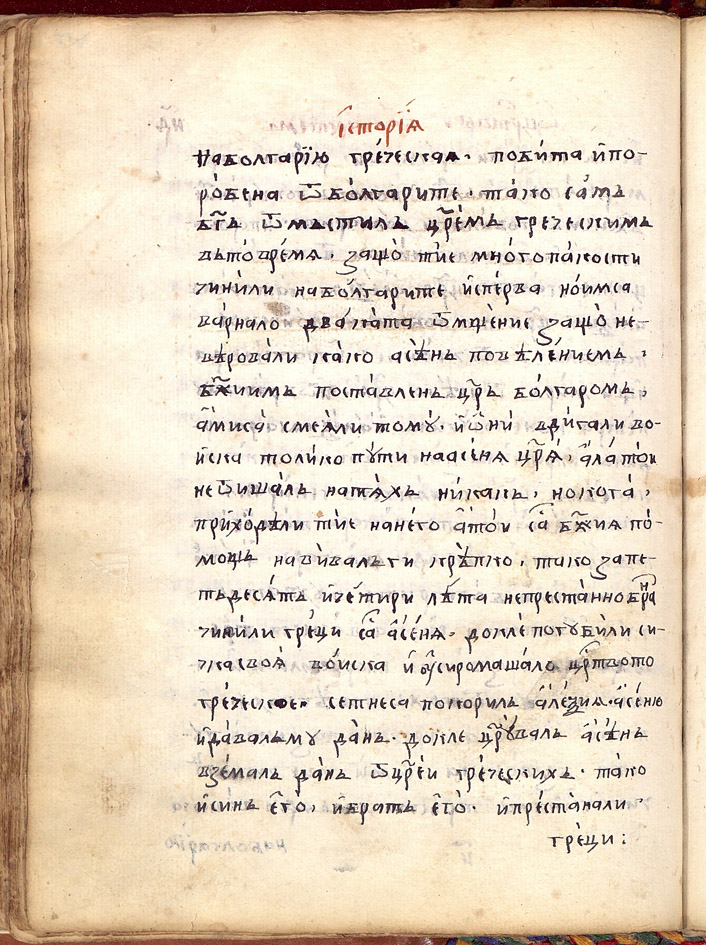 їсторїѧ
наболгарїю грѐческаѧ. поби́та и҆по-
ро́бена ѿбо́лгарите. та́ко са́мъ
бг҃ъ ѿмъсти́лъ цр҃е́мъ греческимъ
въто́вре́мѧ. защо̀ ти́е мно́гопа́кости
чини́ли набо́лгарите и҆спе́рва но́имса
ва́рнало два́ка́та ѿмще́ние защо̀ не-
вѣ́ровали ка́ко асѣ́нь повѣле́ниемъ,
бж҃иимъ поста́вленъ цр҃ъ бо́лгаромъ,
а҆миса̀ смеѧ́ли тому̀. и҆ѡ҆ни́ вдви́гали во-
йска толи́ко пу́ти наасе́нѧ цр҃ѧ̀, а҆ла́то́и
не ѿишалъ натѧ́хъ ни́какъ, но кога̀,
прихо́дѣли ти́е на него̀ а҆то́и са̑ бж҃иѧ по́-
мощъ нави́валъги крѣ́пко, тако запе-
тьдесѧ́тъ и҆че́тири лѣ́та непреста́нно бра́н
чини́ли гре́ци са̑ а҆се́нѧ. доклѐ погꙋби́ли си-
чкасвоѧ̀ во́иска и҆ ѹ҆сиромаша́ло цр҃твото
грѐческое. сетнеса покорилъ а҆ле́ѯиѧ. а҆се́ню
и҆дава́лъмꙋ да́нъ. докле цр҃ꙋ́валъ а҆сѣ́нь
взе́малъ да́нъ ѿцр҃е́и гре́ческихъ. та́ко
и҆си́нъ е҆го̀, и҆бра́тъ е҆го̀. и҆преста́нали.
гре́ци: